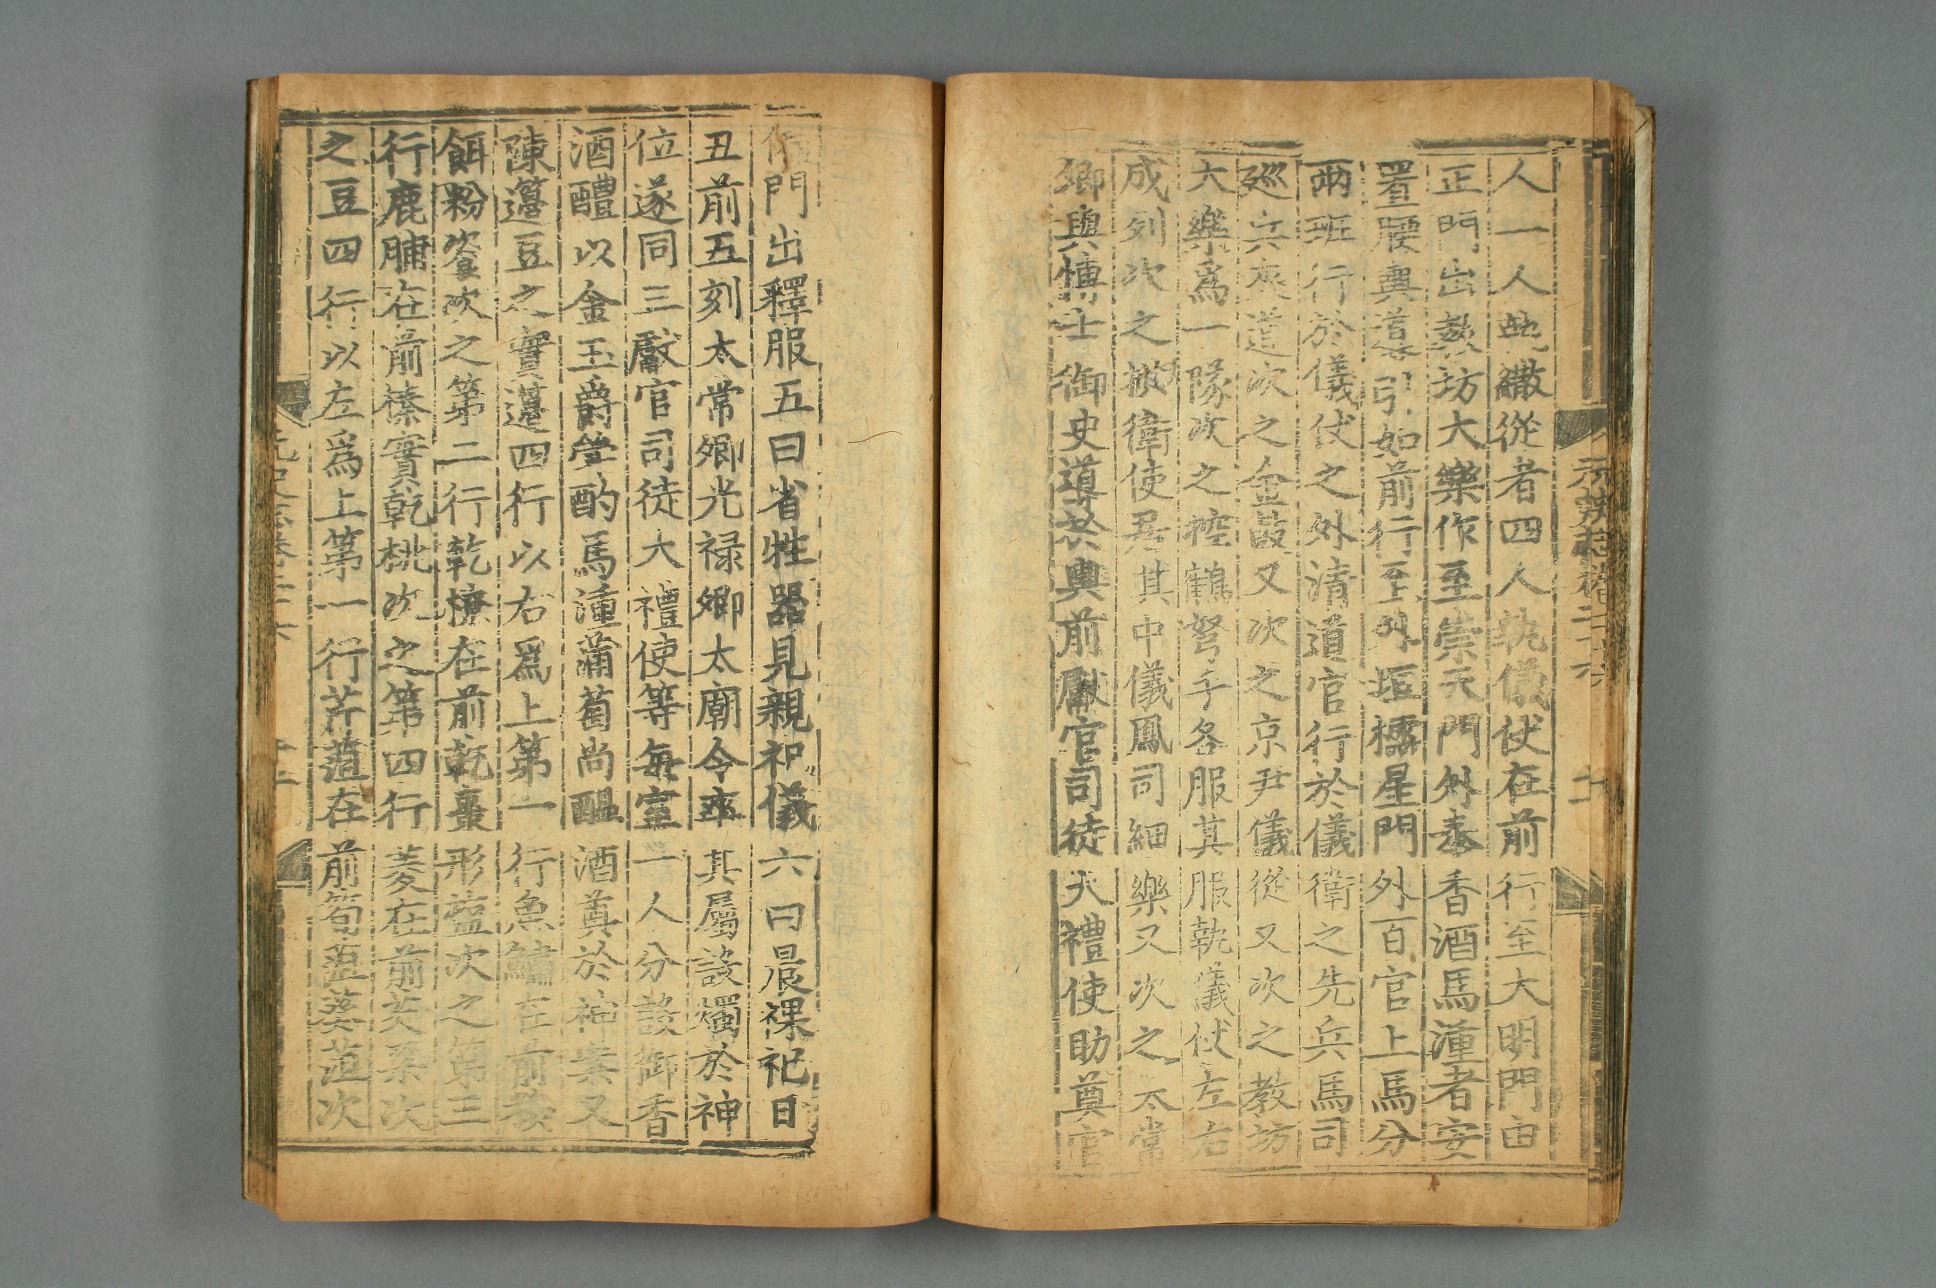 元史志卷二十六
十
人一人執繖從者四人執儀仗在前行至大明門由
正門出教坊大樂作至崇天門外奉香酒馬湩者安
置腰輿導引如前行至外垣櫺星門外百官上馬分
兩班行於儀仗之外清道官行於儀衛之先兵馬司
巡兵夾道次之金鼓又次之京尹儀從又次之教坊
大樂爲一隊次之控鶴弩手各服其服執儀仗左右
成列次之拱衛使居其中儀鳳司細樂又次之太常
卿與博士御史導於輿前獻官司徒大禮使助奠官
門出釋服五曰省牲器見親祀儀六曰晨祼祀日
丑前五刻太常卿光禄卿太廟令率其屬設燭於神
位遂同三獻官司徒大禮使等每室一人分設御香
酒醴以金玉爵斝酌馬湩蒲萄尚醞酒奠於神案又
陳籩豆之實籩四行以右爲上第一行魚鱐在前糗
餌粉餈次之第二行乾䕩在前乾棗形塩次之第三
行鹿脯在前榛實乾桃次之第四行菱在前芡栗次
之豆四行以左爲上第一行芹葅在前筍葅葵葅次
元史志卷二十六
十二